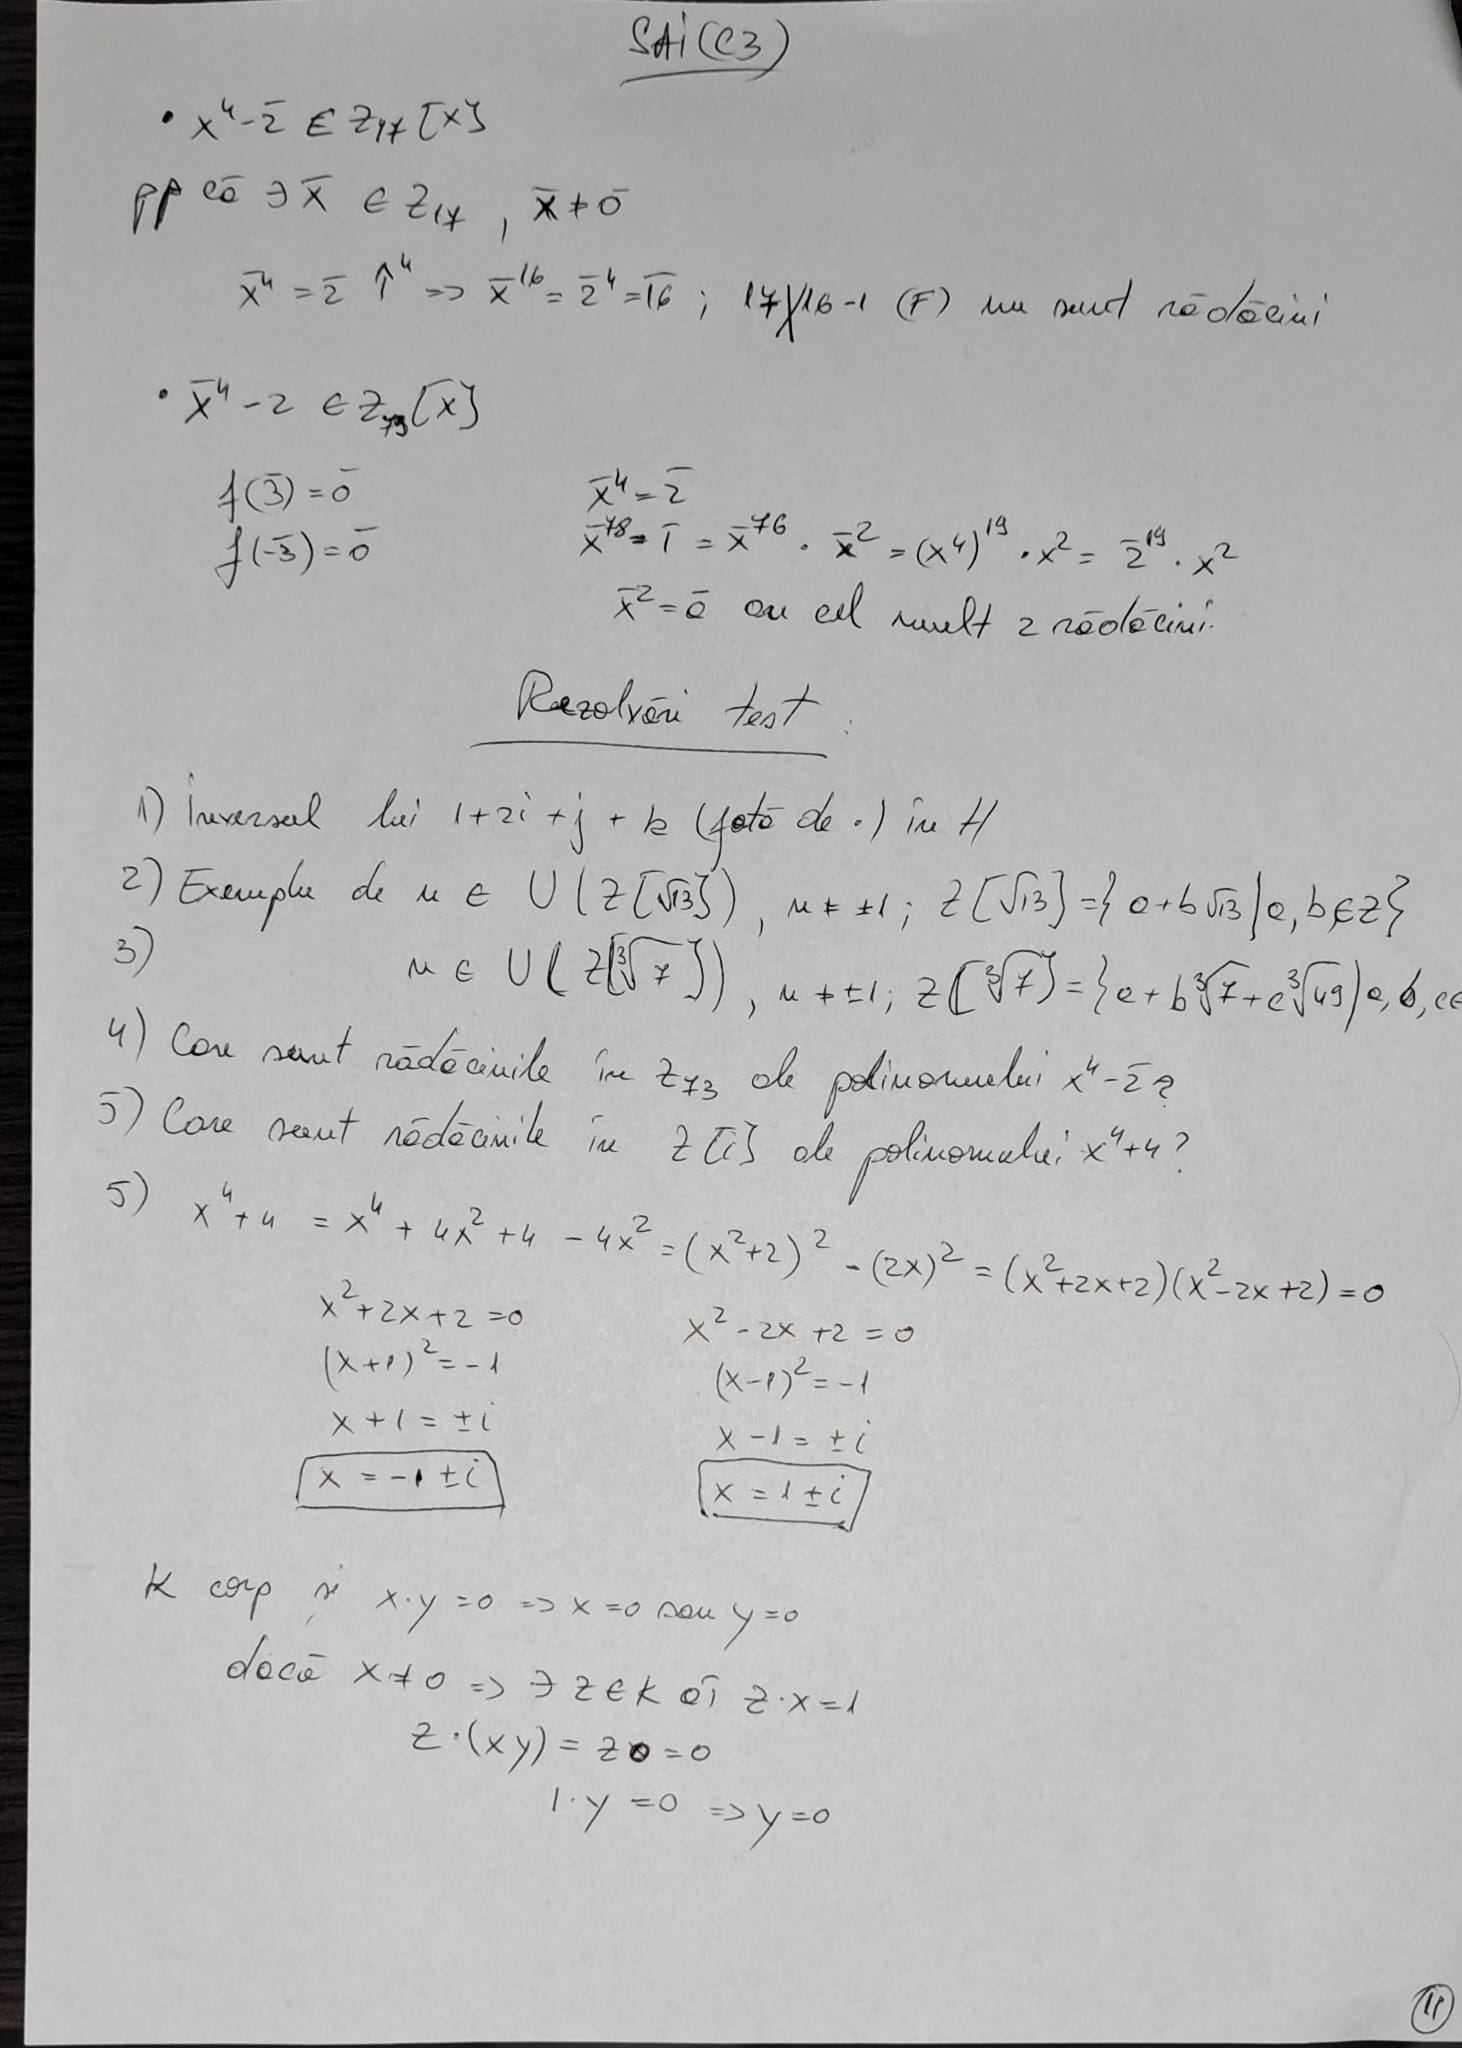 SAI (C3)
• x⁴-2̄ ∈ Z₁₇[x]
pp că ∃ x̄ ∈ Z₁₇, x̄ ≠ 0̄
x̄⁴ = 2̄ ↑⁴ => x̄¹⁶ = 2̄⁴ = 1̄6̄; 17∤16-1 (F) nu sunt rădăcini
• x̄⁴-2 ∈ Z₇₉[x]
f(3̄) = 0̄
f(-3̄) = 0̄
x̄⁴ = 2̄
x̄⁷⁸ = 1̄ = x̄⁷⁶ · x̄² = (x⁴)¹⁹ · x² = 2̄¹⁹ · x²
x̄² = ā au cel mult 2 rădăcini.
Rezolvări test:
1) Inversul lui 1+2i+j+k (față de ·) în H
2) Exemple de u ∈ U(Z[√13]), u ≠ ±1; Z[√13] = {a+b√13 | a, b ∈ Z}
3) u ∈ U(Z[∛7]), u ≠ ±1; Z[∛7] = {a+b∛7+c∛49 | a, b, c ∈
4) Care sunt rădăcinile în Z₇₃ ale polinomului x⁴-2̄?
5) Care sunt rădăcinile în Z[i] ale polinomului x⁴+4?
5) x⁴+4 = x⁴+4x²+4-4x² = (x²+2)²-(2x)² = (x²+2x+2)(x²-2x+2) = 0
x²+2x+2 = 0
(x+1)² = -1
x+1 = ±i
x = -1±i
x²-2x+2 = 0
(x-1)² = -1
x-1 = ±i
x = 1±i
K corp și x·y = 0 => x = 0 sau y = 0
dacă x ≠ 0 => ∃ z ∈ K aî z·x = 1
z·(xy) = z0 = 0
1·y = 0 => y = 0